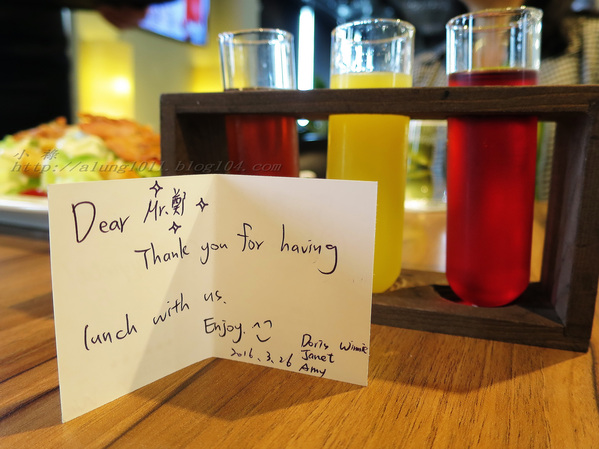 小蓉
http://alung1011.blog104.com
Dear Mr.鄭
Thank you for having
lunch with us.
Enjoy.
2016.3.26
Doris Winnie
Janet
Amy